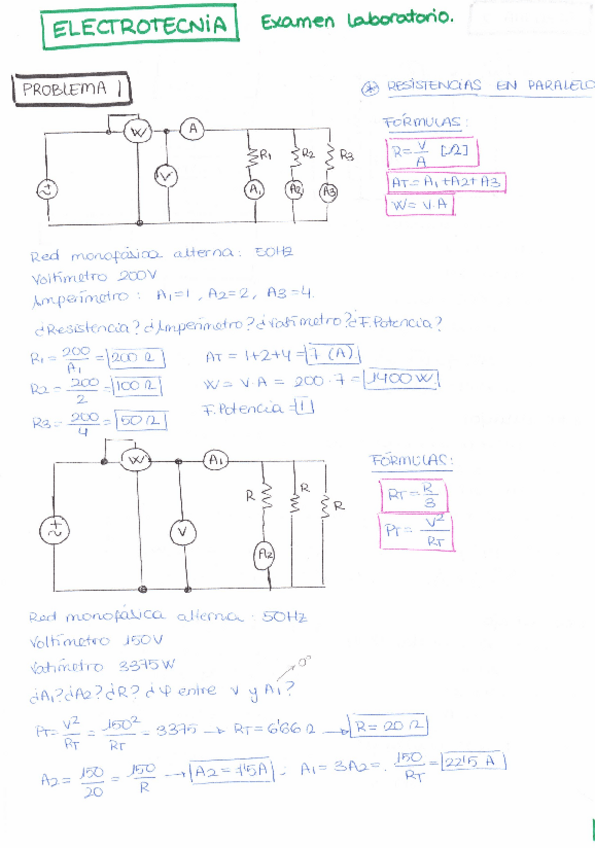 ELECTROTECNIA Examen Laboratorio.
PROBLEMA 1
* RESISTENCIAS EN PARALELO
FÓRMULAS:
R = V/A [Ω]
AT = A1 + A2 + A3
W = V·A
W A V R1 R2 R3 A1 A2 A3
Red monofásica alterna: 50Hz
Voltímetro 200V
Amperímetro: A1=1, A2=2, A3=4.
¿Resistencia? ¿Amperímetro? ¿Vatímetro? ¿F.Potencia?
R1 = 200/A1 = 200 Ω AT = 1+2+4 = 7 (A)
R2 = 200/2 = 100 Ω W = V·A = 200·7 = 1400 W
R3 = 200/4 = 50 Ω F.Potencia = 1
W A1 V R R R A2
FÓRMULAS:
RT = R/3
PT = V²/RT
Red monofásica alterna: 50Hz
Voltímetro 150V
Vatímetro 3375W
0°
¿A1? ¿A2? ¿R? ¿φ entre V y A1?
PT = V²/RT = 150²/RT = 3375 → RT = 6'66 Ω → R = 20 Ω
A2 = 150/20 = 150/R → A2 = 7'5A ; A1 = 3A2 = 150/RT = 22'5 A